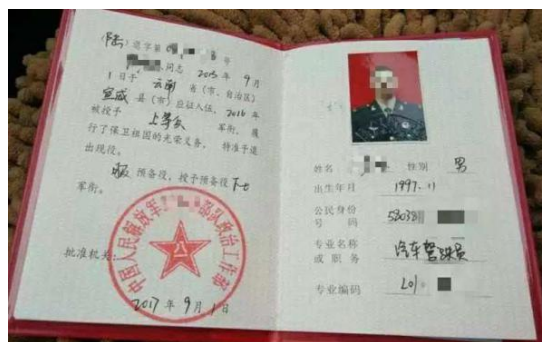 (陆)退字第 号
同志 2015 年 9 月
1 日于 云南 省(市、自治区)
宣威 县(市)应征入伍,2016 年
被授予 上等兵 军衔,履
行了保卫祖国的光荣义务,特准予退
出现役。
服 预备役,授予预备役 下士
军衔。
中国人民解放军 部队政治工作部
批准机关:
2017 年 9 月 1 日
姓名 性别 男
出生年月 1997.11
公民身份
号 码
专业名称 汽车驾驶员
或职务
专业编码 201